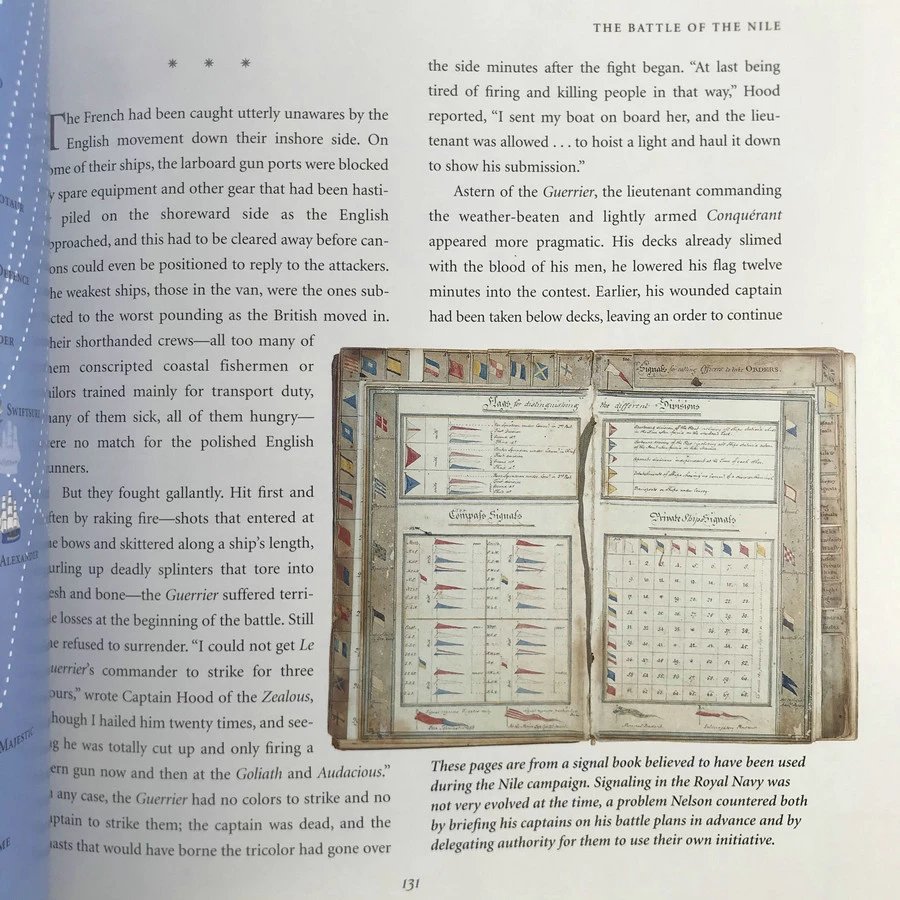 THE BATTLE OF THE NILE
* * *
The French had been caught utterly unawares by the
English movement down their inshore side. On
ome of their ships, the larboard gun ports were blocked
y spare equipment and other gear that had been hasti-
piled on the shoreward side as the English
pproached, and this had to be cleared away before can-
ons could even be positioned to reply to the attackers.
he weakest ships, those in the van, were the ones sub-
cted to the worst pounding as the British moved in.
heir shorthanded crews—all too many of
hem conscripted coastal fishermen or
ilors trained mainly for transport duty,
any of them sick, all of them hungry—
ere no match for the polished English
unners.
But they fought gallantly. Hit first and
ften by raking fire—shots that entered at
e bows and skittered along a ship's length,
urling up deadly splinters that tore into
esh and bone—the Guerrier suffered terri-
e losses at the beginning of the battle. Still
e refused to surrender. “I could not get Le
uerrier's commander to strike for three
ours,” wrote Captain Hood of the Zealous,
hough I hailed him twenty times, and see-
g he was totally cut up and only firing a
ern gun now and then at the Goliath and Audacious.”
any case, the Guerrier had no colors to strike and no
ptain to strike them; the captain was dead, and the
asts that would have borne the tricolor had gone over
the side minutes after the fight began. “At last being
tired of firing and killing people in that way,” Hood
reported, “I sent my boat on board her, and the lieu-
tenant was allowed . . . to hoist a light and haul it down
to show his submission.”
Astern of the Guerrier, the lieutenant commanding
the weather-beaten and lightly armed Conquérant
appeared more pragmatic. His decks already slimed
with the blood of his men, he lowered his flag twelve
minutes into the contest. Earlier, his wounded captain
had been taken below decks, leaving an order to continue
Signals for calling Officers to take ORDERS.
Flags for distinguishing the different Divisions
Compass Signals
Private Ships Signals
These pages are from a signal book believed to have been used
during the Nile campaign. Signaling in the Royal Navy was
not very evolved at the time, a problem Nelson countered both
by briefing his captains on his battle plans in advance and by
delegating authority for them to use their own initiative.
131
DEFENCE
SWIFTSURE
ALEXANDER
MAJESTIC